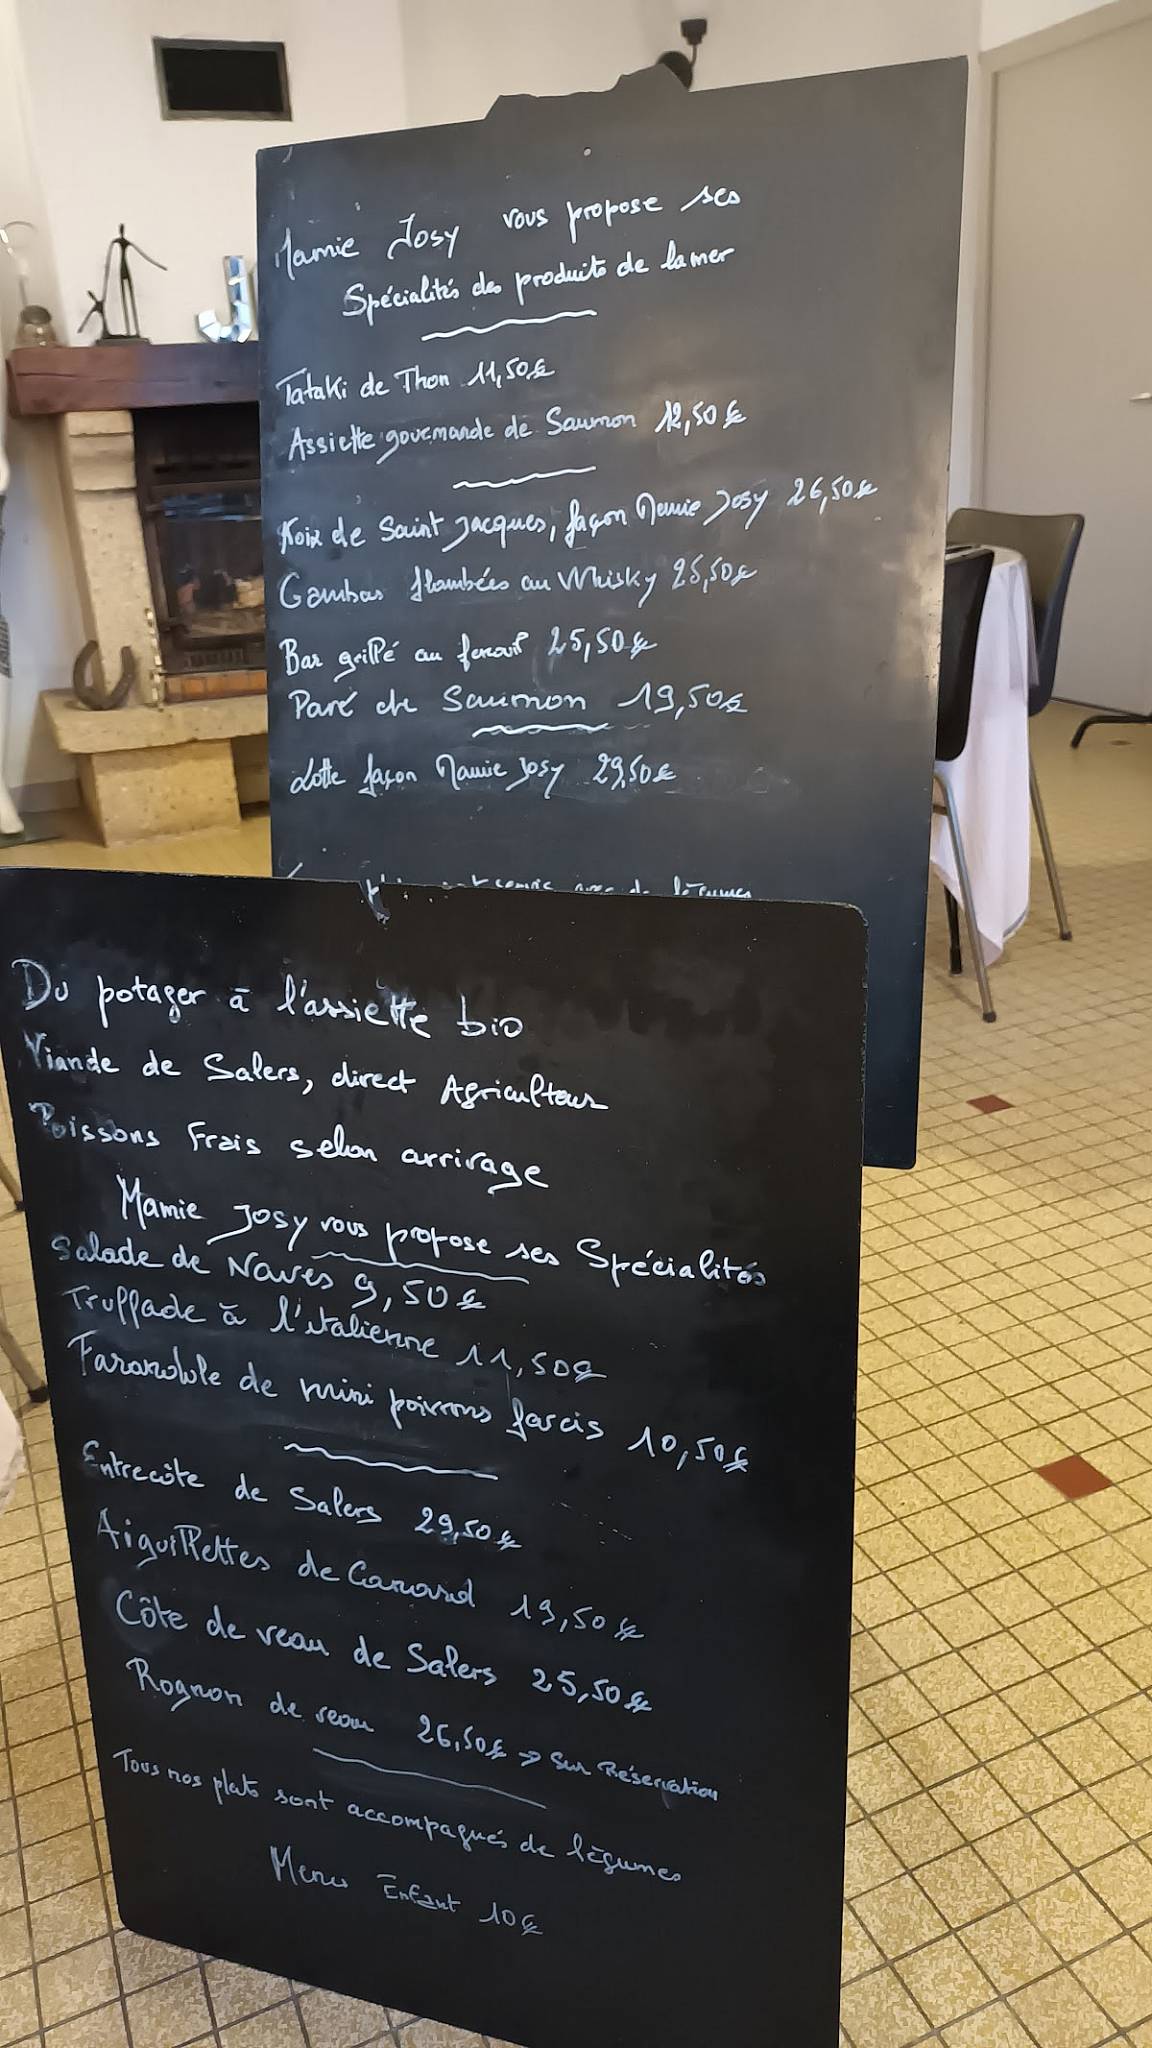 Mamie Josy vous propose ses
Spécialités des produits de la mer
Tataki de Thon 11,50€
Assiette gourmande de Saumon 12,50€
Noix de Saint Jacques, façon Mamie Josy 26,50€
Gambas flambées au Whisky 25,50€
Bar grillé au fenouil 25,50€
Pavé de Saumon 19,50€
Lotte façon Mamie Josy 29,50€
servis avec de légumes
Du potager à l'assiette bio
Viande de Salers, direct Agriculteur
Poissons Frais selon arrivage
Mamie Josy vous propose ses Spécialités
Salade de Naves 9,50€
Truffade à l'italienne 11,50€
Farandole de mini poivrons farcis 10,50€
Entrecôte de Salers 29,50€
Aiguillettes de Canard 19,50€
Côte de veau de Salers 25,50€
Rognon de veau 26,50€ → Sur Réservation
Tous nos plats sont accompagnés de légumes
Menu Enfant 10€